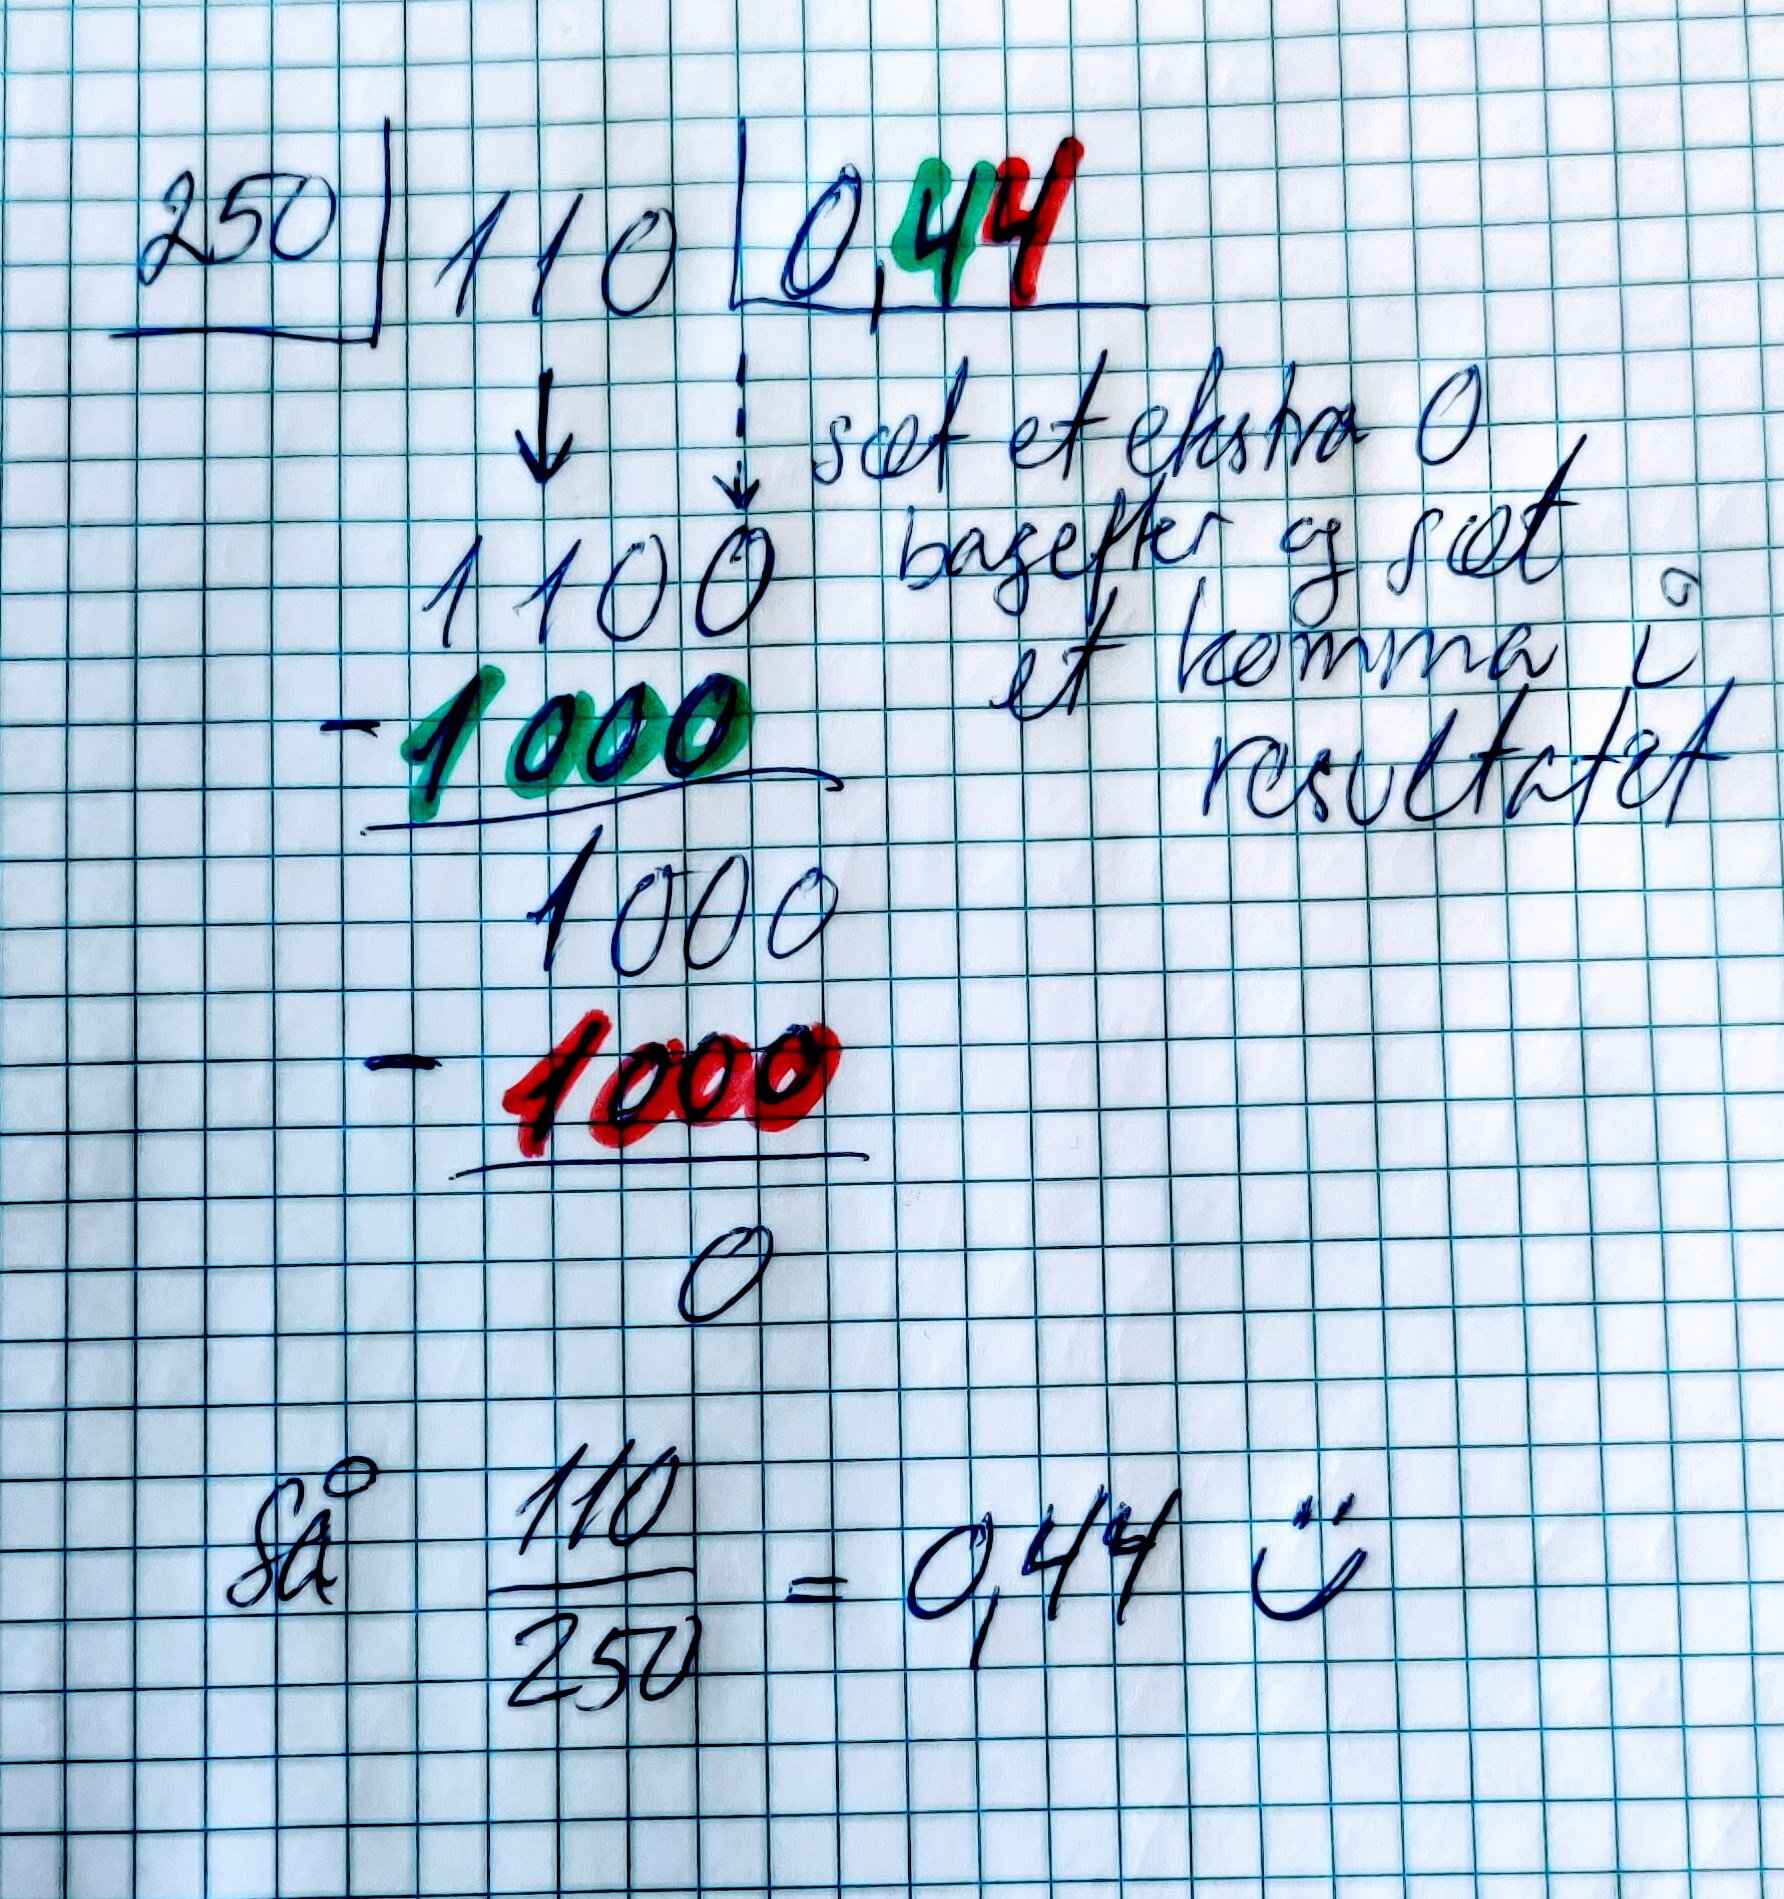 250 110 0,44
sæt et ekstra 0
1100 bagefter og sæt
et komma i
- 1000 resultatet
1000
- 1000
0
Så 110/250 = 0,44 ¨‿